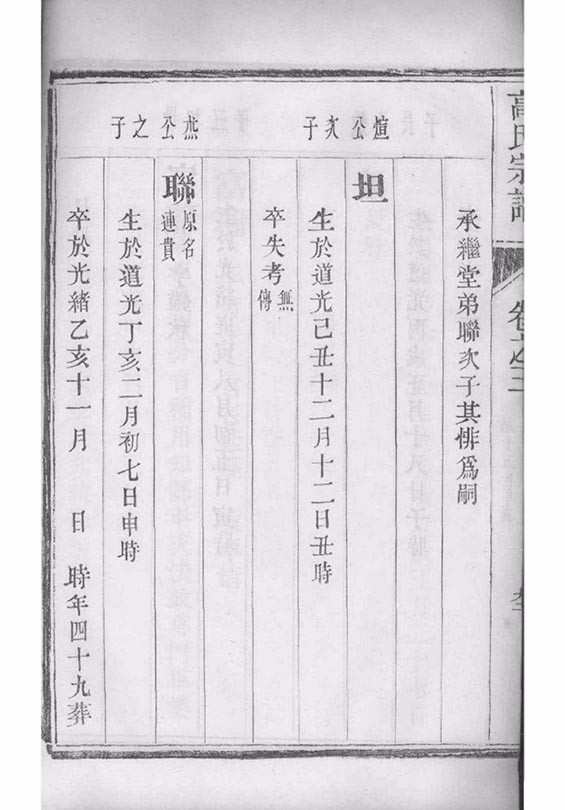 高氏宗譜
卷之三
承繼堂弟聯次子其悱爲嗣
煊公次子
坦
生於道光己丑十二月十二日丑時
卒失考
無傳
燕公之子
聯
原名連貴
生於道光丁亥二月初七日申時
卒於光緒乙亥十一月 日 時年四十九葬